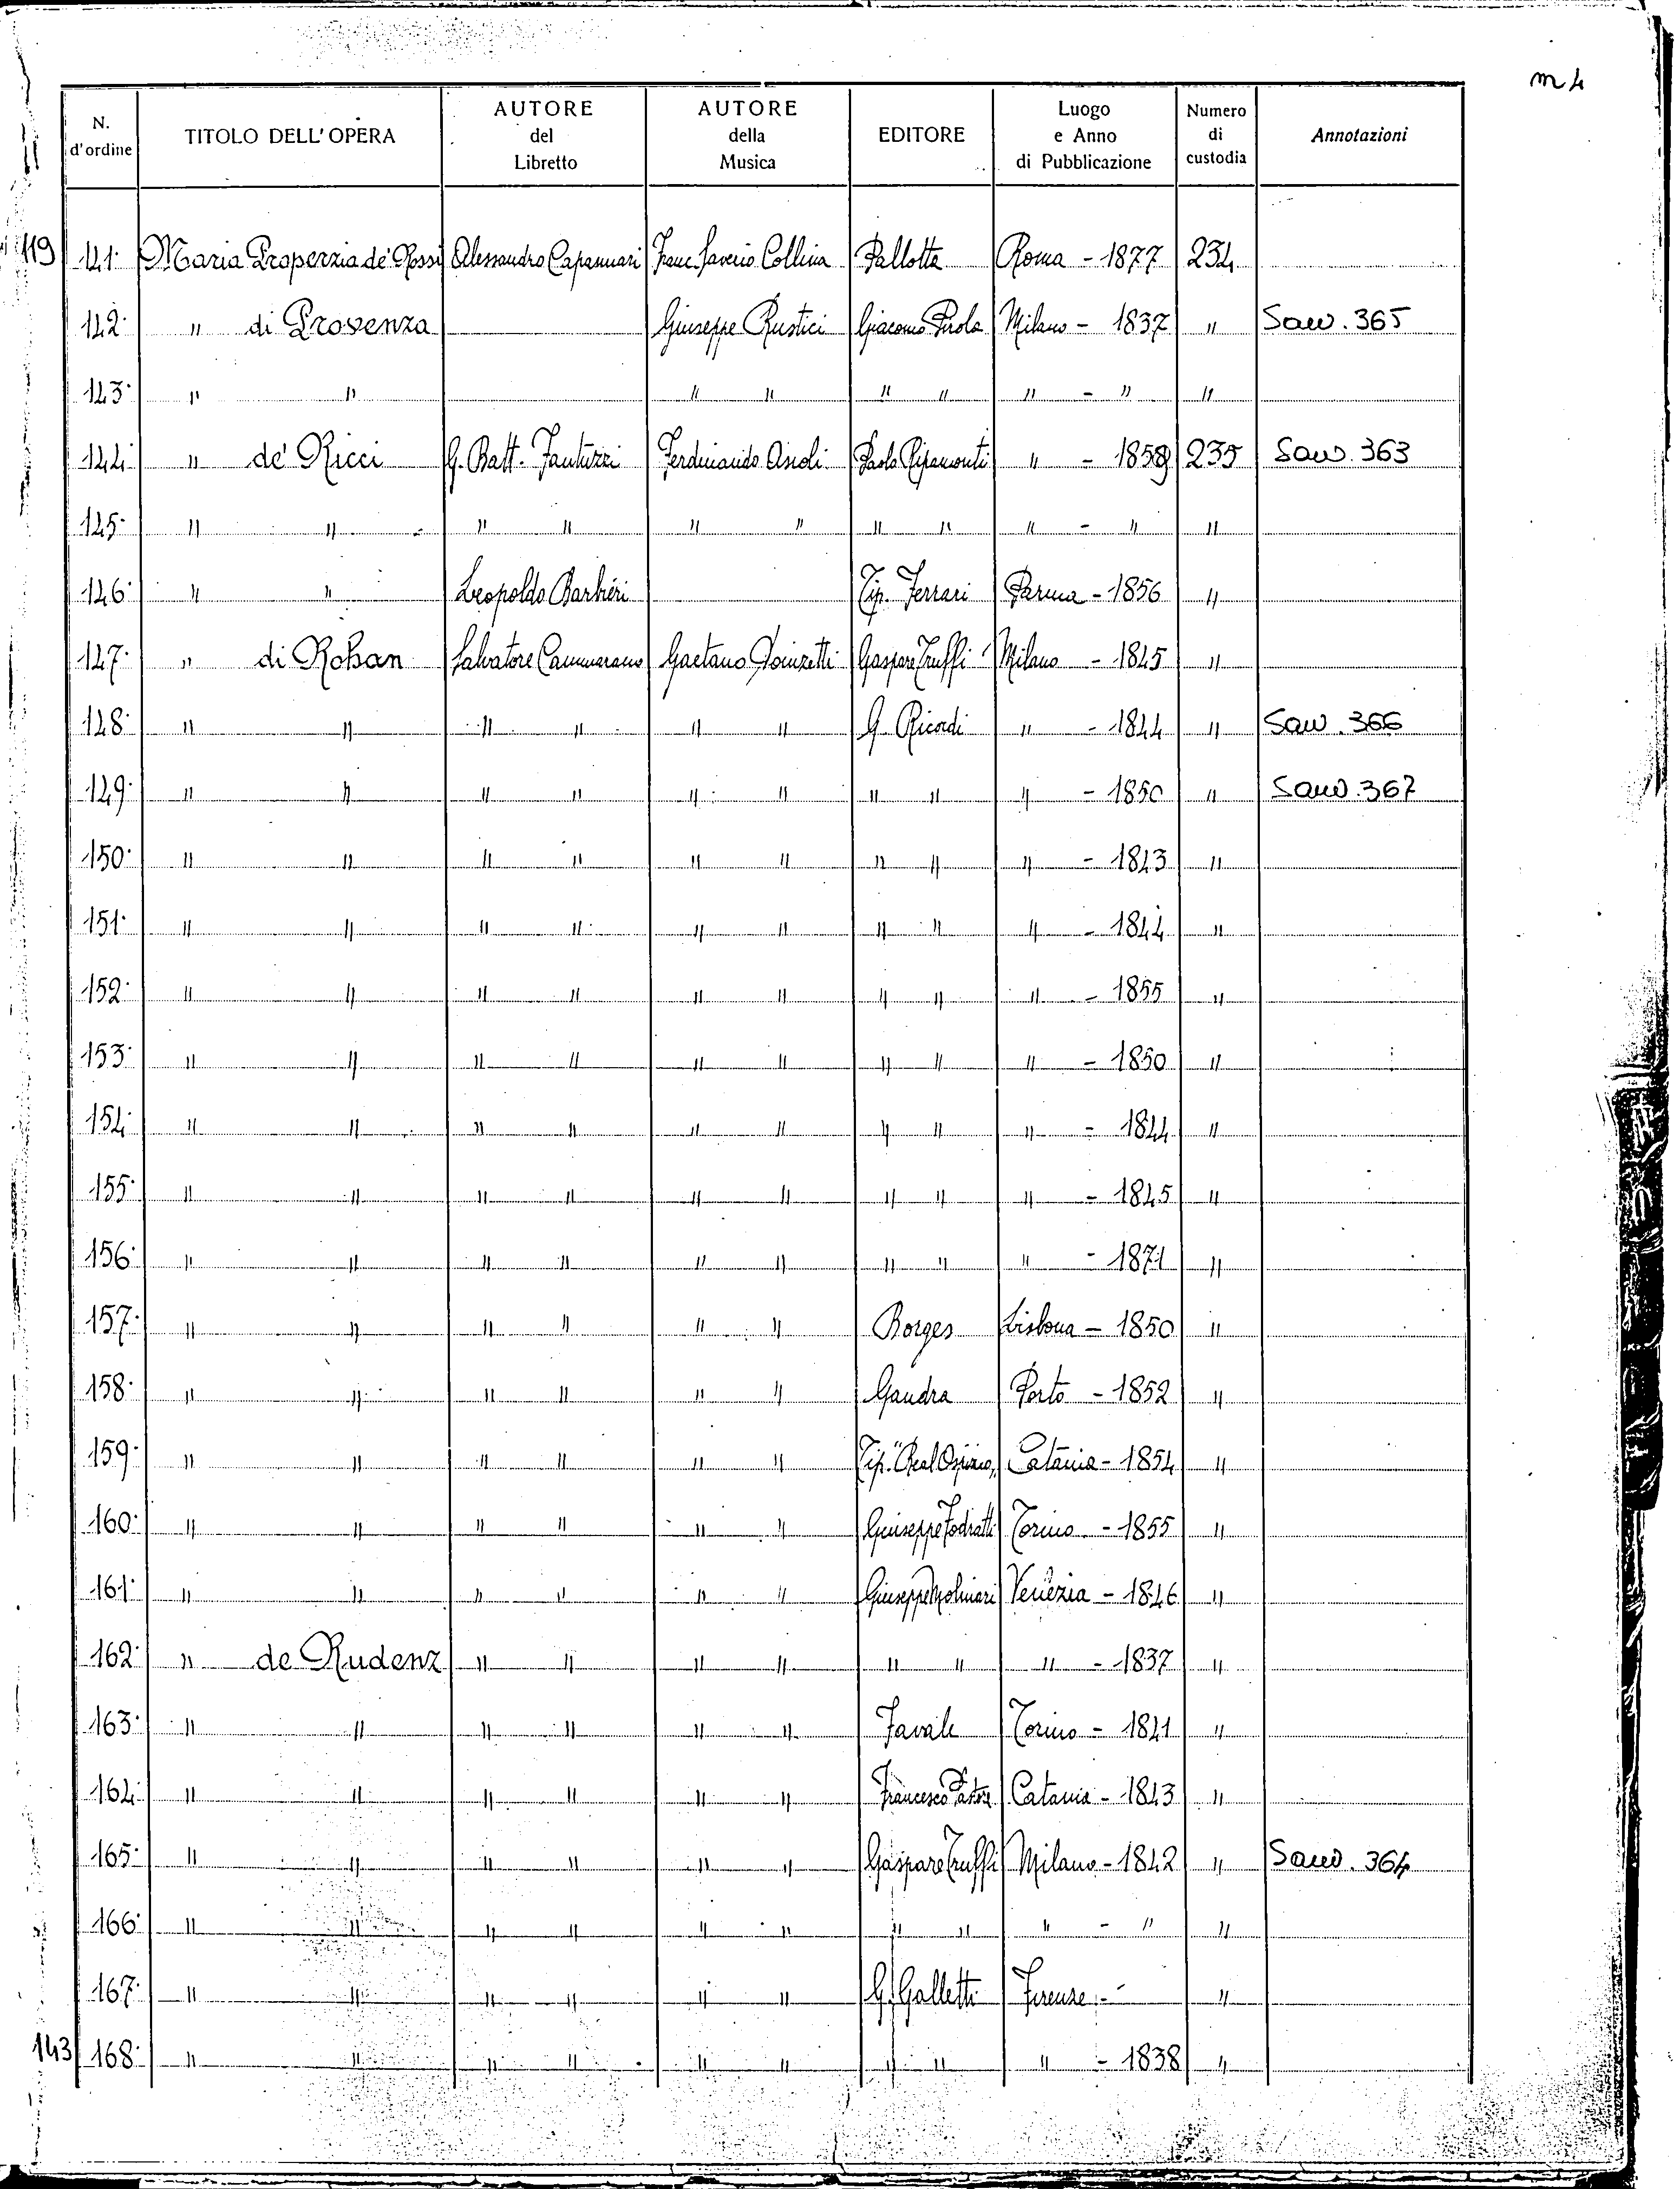 m 4
N. d'ordine TITOLO DELL'OPERA AUTORE del Libretto AUTORE della Musica EDITORE Luogo e Anno di Pubblicazione Numero di custodia Annotazioni
119 141· Maria Properzia de' Rossi Alessandro Capannari Franc. Saverio Collina Pallotta Roma - 1877 234
142· " di Provenza Giuseppe Rustici Giacomo Pirola Milano - 1837 " Saw. 365
143· " " " " " " " - " "
144· " de' Ricci G. Batt. Fantuzzi Ferdinando Asioli Paolo Ripamonti " - 1859 235 Saw. 363
145· " " " " " " " " " - " "
146· " " Leopoldo Barbieri Tip. Ferrari Parma - 1856 "
147· " di Rohan Salvatore Cammarano Gaetano Donizetti Gaspare Truffi Milano - 1845 "
148· " " " " " " G. Ricordi " - 1844 " Saw. 366
149· " " " " " " " " " - 1850 " Saw. 367
150· " " " " " " " " " - 1843 "
151· " " " " " " " " " - 1844 "
152· " " " " " " " " " - 1855 "
153· " " " " " " " " " - 1850 "
154· " " " " " " " " " - 1844 "
155· " " " " " " " " " - 1845 "
156· " " " " " " " " " - 1871 "
157· " " " " " " Borges Lisbona - 1850 "
158· " " " " " " Gandra Porto - 1852 "
159· " " " " " " Tip. "Real Ospizio" Catania - 1854 "
160· " " " " " " Giuseppe Fodratti Torino - 1855 "
161· " " " " " " Giuseppe Molinari Venezia - 1846 "
162· " de Rudenz " " " " " " " - 1837 "
163· " " " " " " Favale Torino - 1841 "
164· " " " " " " Francesco Pastore Catania - 1843 "
165· " " " " " " Gaspare Truffi Milano - 1842 " Saw. 364
166· " " " " " " " " " - " "
167· " " " " " " G. Galletti Firenze - "
143 168· " " " " " " " " " - 1838 "